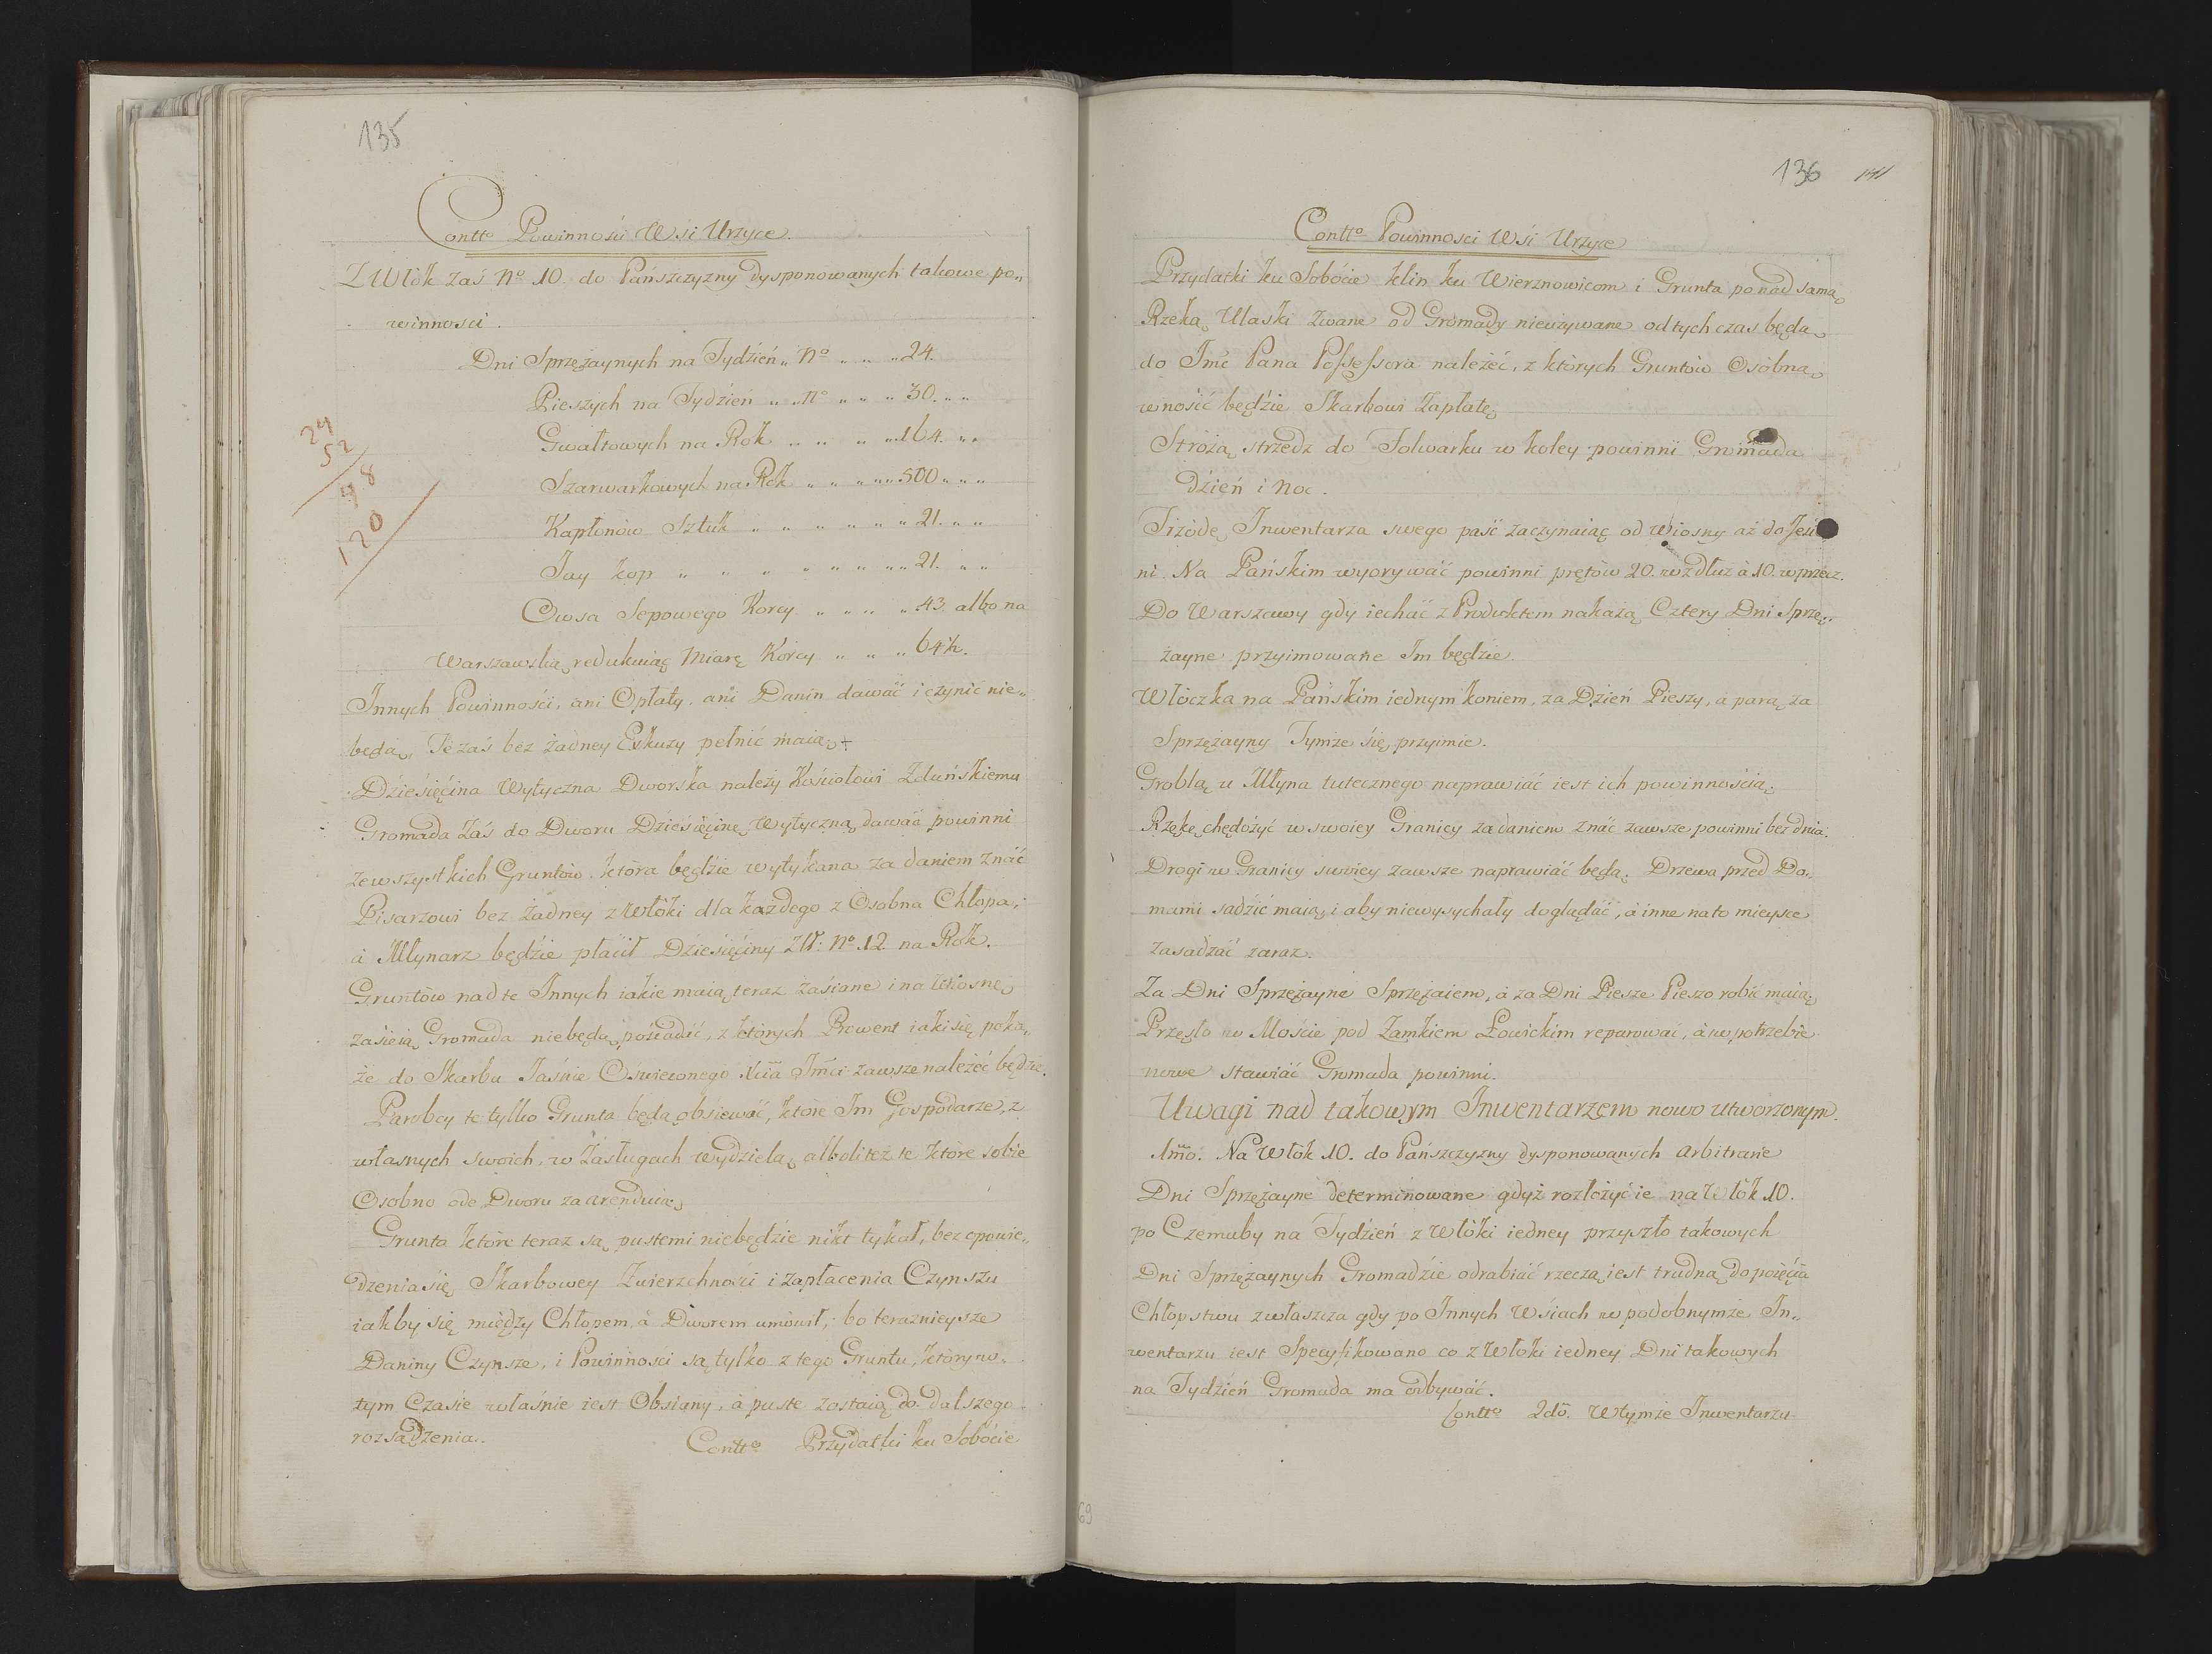 135
Contto Powinności Wsi Urzyce.
Z Włók zaś No 10. do Pańszczyzny dysponowanych takowe po„
winnosci.
Dni Sprzężaynych na Tydzień „ No „ „ „ 24.
Pieszych na Tydzień „ „ No „ „ „ 30. „ „
Gwałtowych na Rok „ „ „ „ „ 164. „ „
Szarwarkowych na Rok „ „ „ „ „ 500 „ „ „
Kapłonów Sztuk „ „ „ „ „ „ „ 21. „ „
Jay kop „ „ „ „ „ „ „ „ 21. „ „
Owsa Sepowego Korcy „ „ „ „ 43. albo na
Warszawską redukuiąc Miarę Korcy „ „ „ 64½.
24
52
48
120
Innych Powinności, ani Opłaty, ani Danin dawać i czynić nie„
będą, Te zaś bez żadney Exkuzy pełnić maią.
Dziesięcina Wytyczna Dworska należy Kościołowi Zduńskiemu
Gromada Zaś do Dworu Dziesięcinę Wytyczną dawać powinni
ze wszystkich Gruntów która będzie wytykana za daniem znać
Pisarzowi bez Żadney z Włóki dla każdego z Osobna Chłopa,
á Młynarz będzie płacił Dziesięciny Złł: No 12 na Rok.
Gruntów nad te Innych iakie maią teraz zasiane i na Wiosnę
zasieią Gromada niebędą posiadać, z których Prowent iaki się poka„
że do Skarbu Jaśnie Oswieconego Xcia Jmci zawsze należeć będzie.
Parobcy te tylko Grunta będą obsiewać, które Im Gospodarze, z
własnych swoich, w Zasługach wydzielą, alboliteż te które sobie
Osobno ode Dworu zaarenduią
Grunta które teraz są pustemi niebędzie nikt tykał, bez opowie„
dzenia się Skarbowey Zwierzchności i zapłacenia Czynszu
iakby się między Chłopem, á Dworem umówił, bo teraznieysze
Daniny Czynsze, i Powinnosci są tylko z tego Gruntu, który w
tym Czasie właśnie iest Obsiany, á puste zostaią do dalszego
rozsądzenia.
Contto Przydatki ku Sobocie
136
141
Contto Powinnosci Wśi Urzyce
Przydatki ku Sobócie klin ku Wierznowicom i Grunta ponad samą
Rzeką Ulaski Zwane od Gromady nieużywane odtychczas będą
do Jmć Pana Possessora należeć, z których Gruntów Osóbną
wnosić będzie Skarbowi Zapłatę
Stróżą strzedz do Folwarku w koley powinni Gromada
dzień i Noc.
Trzódę Inwentarza swego paść zaczynaiąc od Wiosny aż do Jesie
ni. Na Pańskim wyorywać powinni prętów 20. wzdłuż à 10. wprzecz.
Do Warszawy gdy iechać z Produktem nakażą Cztery Dni Sprzę„
żayne przyimowane Im będzie.
Włóczka na Pańskim iednym koniem, za Dzień Pieszy, á parą za
Sprzężayny Tymże się przyimie.
Groblą u Młyna tutecznego naprawiać iest ich powinnością.
Rzekę chędożyć w swoiey Granicy za daniem znać zawsze powinni bez dnia.
Drogi w Granicy swoiey zawsze naprawiać będą. Drzewa przed Do„
mami sadzić maią, i aby niewysychały doglądać, á inne na to mieysce
zasadzać zaraz.
Za Dni Sprzężayne Sprzężaiem, á za Dni Piesze Pieszo robić maią
Przęsło w Moście pod Zamkiem Łowickim reparować, á w potrzebie
nowe stawiać Gromada powinni.
Uwagi nad takowym Inwentarzem nowo utworzonym.
1mo. Na Włók 10. do Pańszczyzny dysponowanych arbitranie
Dni Sprzężayne determinowane gdyż rozłożyć ie na Włók 10.
po Czemuby na Tydzień z Włóki iedney przyszło takowych
Dni Sprzężaynych Gromadzie odrabiać rzeczą iest trudną do poięcia
Chłopstwu zwłaszcza gdy po Innych Wsiach w podobnymże In„
wentarzu iest Specyfikowano co z Włóki iedney Dni takowych
na Tydzień Gromada ma odbywać.
Contto 2do. W tymże Inwentarzu
69